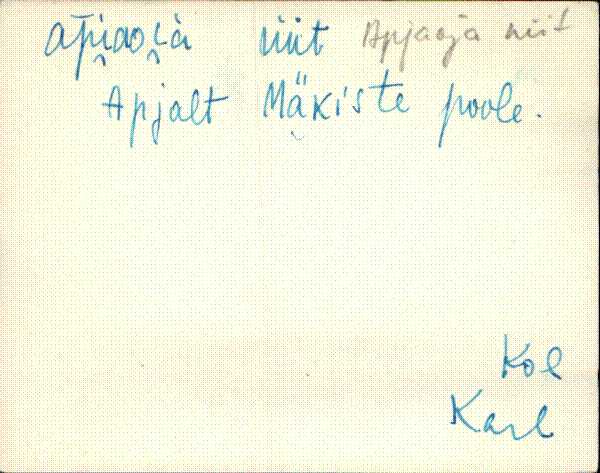 ap̄i̯aoi̯à niit Apjaoja niit
Apjalt Mäkiste poole.
Kol
Karl